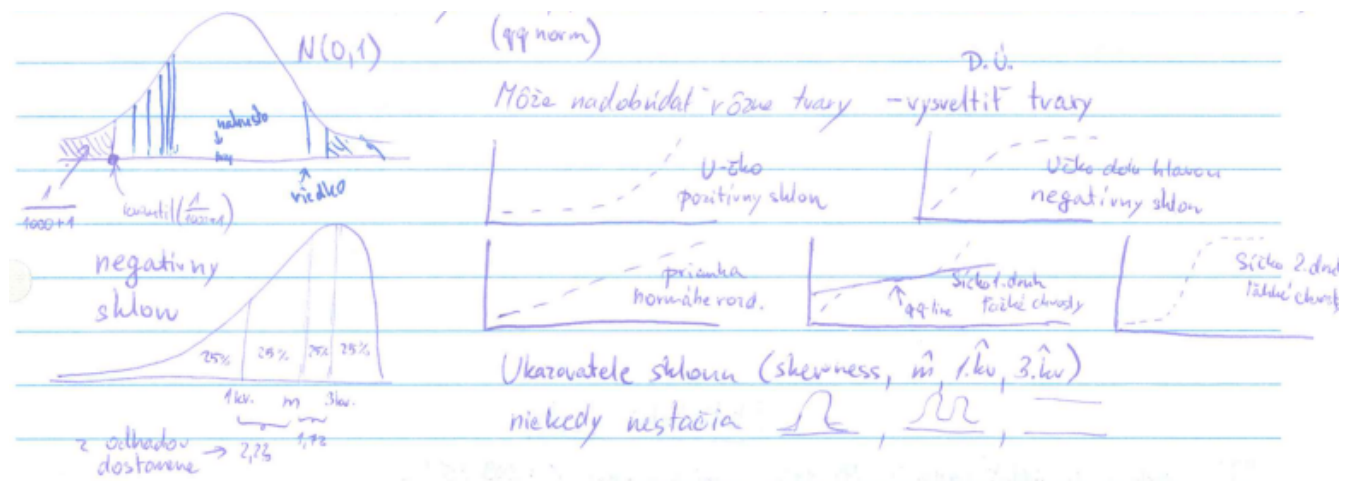 N(0,1)
nahusto
riedko
1/(1000+1)
kvantil(1/(1000+1))
negatívny
sklon
25% 25% 25% 25%
1kv. m 3kv.
z odhadov
dostaneme → 2,23 1,72
(qq norm)
D.Ú.
Môže nadobúdať rôzne tvary - vysvetliť tvary
U-čko
pozitívny sklon
Učko dolu hlavou
negatívny sklon
priamka
normálne rozd.
Síčko 1. druh
ťažké chvosty
qq-line
Síčko 2. druh
ľahké chvosty
Ukazovatele sklonu (skewness, m̂, 1.k̂v, 3.k̂v)
niekedy nestačia , ,